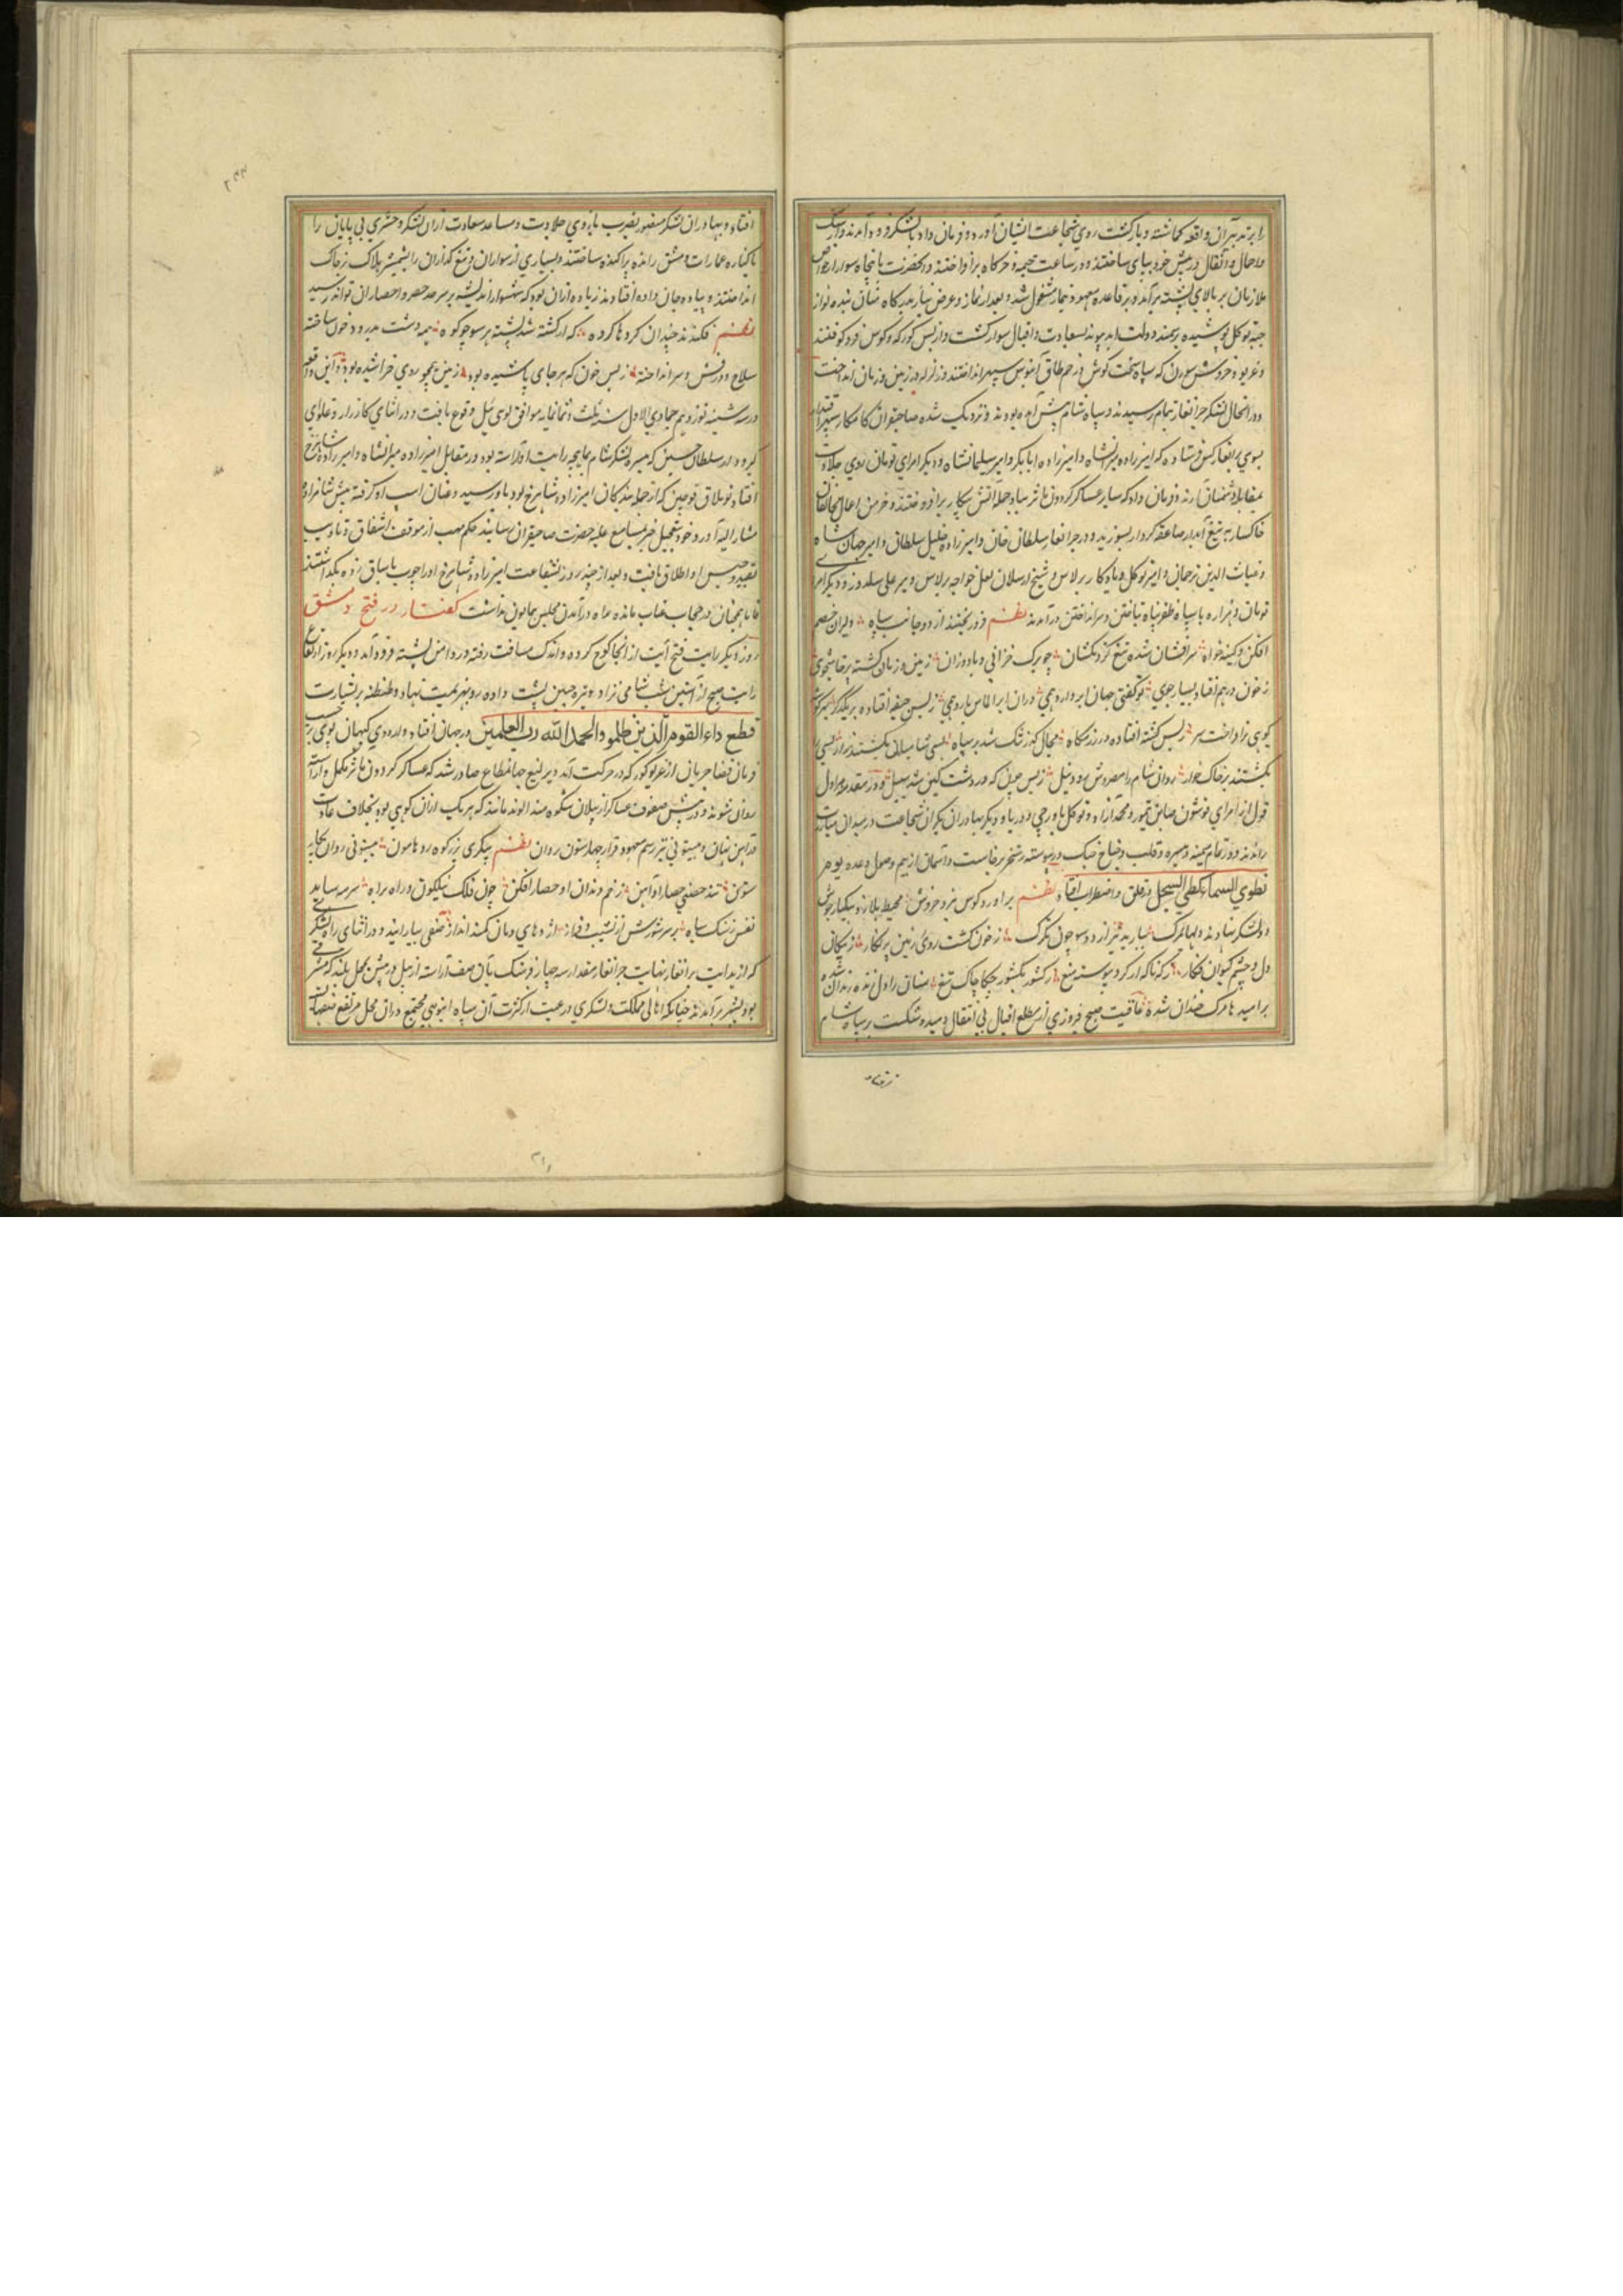 را بر تدبیر آن واقعه گماشته و بازگشت روی شجاعت ایشان آورد و فرمان داد تا لشکر فرود آمدند و از سنگ
و احمال و اثقال در پیش خود بپای ساختند و در ساعت خیمه و خرگاه برافراختند و آنحضرت با پنجاه سوار از خواص
ملازمان بر بالای پشته برآمد و بر قاعده معهود بنماز مشغول شد و بعد از نماز و عرض نیاز بدرگاه بنده نواز
جبّه توکل پوشیده بر سمند دولت ابد پیوند بسعادت و اقبال سوار گشت و از بس کورکه و کوس فرو کوفتند
و غریو و خروش سورن که سپاه سخت کوش در خم طاق آبنوس سپهر انداختند زلزله در زمین و زمان انداخت
و در آنحال لشکر جرانغار تمام رسیدند و سپاه شام پیش آمده بودند و نزدیک شده صاحبقران کامکار سپهر اقتدار
بسوی برانغار کس فرستاده که امیرزاده میرانشاه و امیرزاده ابابکر و امیر سلیمانشاه و دیگر امرای تومان روی جلادت
بمقابله دشمنان آرند و فرمان داد که سایر عساکر گردون مآثر بباد حمله آتش پیکار برافروختند و خرمن اعمال مخالفان
خاکسار به تیغ آبدار صاعقه کردار بسوزند و در جرانغار سلطان خان و امیرزاده خلیل سلطان و امیر جهان شاه
و غیاث الدین ترخان و امیر توکل و یادگار برلاس و شیخ ارسلان لعل خواجه برلاس و میر علی سلدوز و دیگر امرا
تومان و هزاره با سپاه ظفر پناه بتاختن و سر انداختن درآمدند نظم فرو ریختند از دو جانب سپاه دلیران خصم
افکن و کینه خواه سرافشان شده تیغ گردنکشان چو برگ خزانی و باد وزان زمین و زمان گشته پرخاشجوی
ز خون در هم افتاد بسیار جوی تو گفتی جهان ابر دارد همی در آن ابر الماس بارد همی ز بس جیفه افتاده بر یکدگر
کوهی برافراخت سر ز بس کشته افتاده در رزمگاه مجال گذر تنگ شد بر سپاه بسی شامیانی بکشتند زار بسی را
بکشتند بر خاک خوار روان شام را مصر و شد رود نیل ز بس چیل که در دشت کین شد سبیل و در مقدمه هراول
قول از امرای قوشون صاین تیمور و محمد آزاد و توکل باورچی و دریا و دیگر بهادران یکران شجاعت در میدان مبارزت
راندند و در تمام میمنه و میسره و قلب و جناح جنگ در پیوسته رستخیز برخاست و آسمان از بیم وصول وعده یوم
نطوی السماء کطی السجل در قلق و اضطراب افتاد نظم برآورد کوس نبرد خروش محیط بلا زد بیکبار جوش
دو لشکر نهادند دلها بمرگ ببارید تیر از دو سو چون تگرگ ز خون گشت روی زمین پر نگار ز پیکان
دل و چشم کیوان فگار ز گرد پیوسته میغ ز کشور بکشور چکاچاک تیغ سنان را دل زنده زندان شده
بر امید ها مرگ خندان شده عاقبت صبح فیروزی از مطلع اقبال بی انتقال دمید و شکست بر سپاه شام
افتاد و بهادران لشکر منصور بضرب بازوی جلادت و مساعد سعادت از آن لشکر و حشری بی پایان را
تا کناره عمارات دمشق رانده پراکنده ساختند و بسیاری از سواران و تیغ گذاران را بشمشیر هلاک بر خاک
انداختند و پیاده جان داده افتادند زیاده از آن بود که شهسوار اندیشه بر سرحد حصر و احصار آن تواند رسید
نظم فکندند چندان گردها گرده که از کشته شد پشته هر سو چو کوه همه دشت بدرود خون ساخته
سلاح و درفش و سر انداخته ز بس خون که هر جای پاشیده بود زمین همچو روی خراشیده بود و این واقعه
در سه شنبه نوزدهم جمادی الاول سنه ثلث و ثمانمایه موافق لوی ئیل وقوع یافت و در اثنای کارزار و غلوای
گیر و دار سلطان حسین که میسره لشکر شام بماهچه رایت او آراسته بود در مقابل امیرزاده میرانشاه و امیرزاده شاهرخ
افتاد تو بلاق قوچین که از جمله بندگان امیرزاده شاهرخ بود باو رسید و عنان اسپ او گرفته پیش شاهزاده
مشار الیه آورد و خود بتعجیل خبر بمسامع علیه حضرت صاحبقران رسانید حکم مهیب از موقف اشفاق و تأدیب
بقید و حبس او اطلاق یافت و بعد از چند روز بشفاعت امیرزاده شاهرخ او را چوب یاساق زده بگذاشتند
فاما همچنان در حجاب عتاب مانده راه درآمدن بمجلس همایون نداشت گفتار در فتح دمشق
روز دیگر رایت فتح آیت از آنجا کوچ کرده و اندک مسافت رفته در دامن پشته فرود آمد و دیگر روز ارتفاع
رایت صبح از آستین شب شامی نژاد و تیره جبین پشت داده رو بهزیمت نهاد و طنطنه بر بشارت
فقطع دابر القوم الذین ظلموا و الحمد لله رب العلمین در جهان افتاد و اردوی کیهان پوی بر حسب
فرمان قضا جریان از غریو کورکه در حرکت آمد و یرلیغ جهانمطاع صادر شد که عساکر گردون مآثر مکمل و آراسته
روان شوند و در پیش صفوف عساکر از پیلان شکوهمند الوند مانند که هر یک از آن کوهی بود بخلاف عادت
قدامین بنیان و بیستونی نیز رسم معهود و قرار چهار ستون روان نظم پیکری بزرگ کوه رو هامون بیستونی روان بجای
ستون تند حصنی حصار او آهن زخم دندان او حصار افکن چون فلک نیلگون و راه براه سرمه ساید
نفس ز سنگ سیاه بر سرش از نشیب و فراز اژدهای دمان کمند انداز صفی بیارایند و در اثنای راه لشکر
که از بدایت برانغار بنهایت جرانغار مقدار سه چهار فرسنگ یسال صف آراسته از میل در پیش بمحل بلند که مشرف
بود بشهر برآمدند چنانکه اهالی مملکت و لشکری و رعیت از کثرت آن سپاه انبوهی مجتمع در آن محل مرتفع